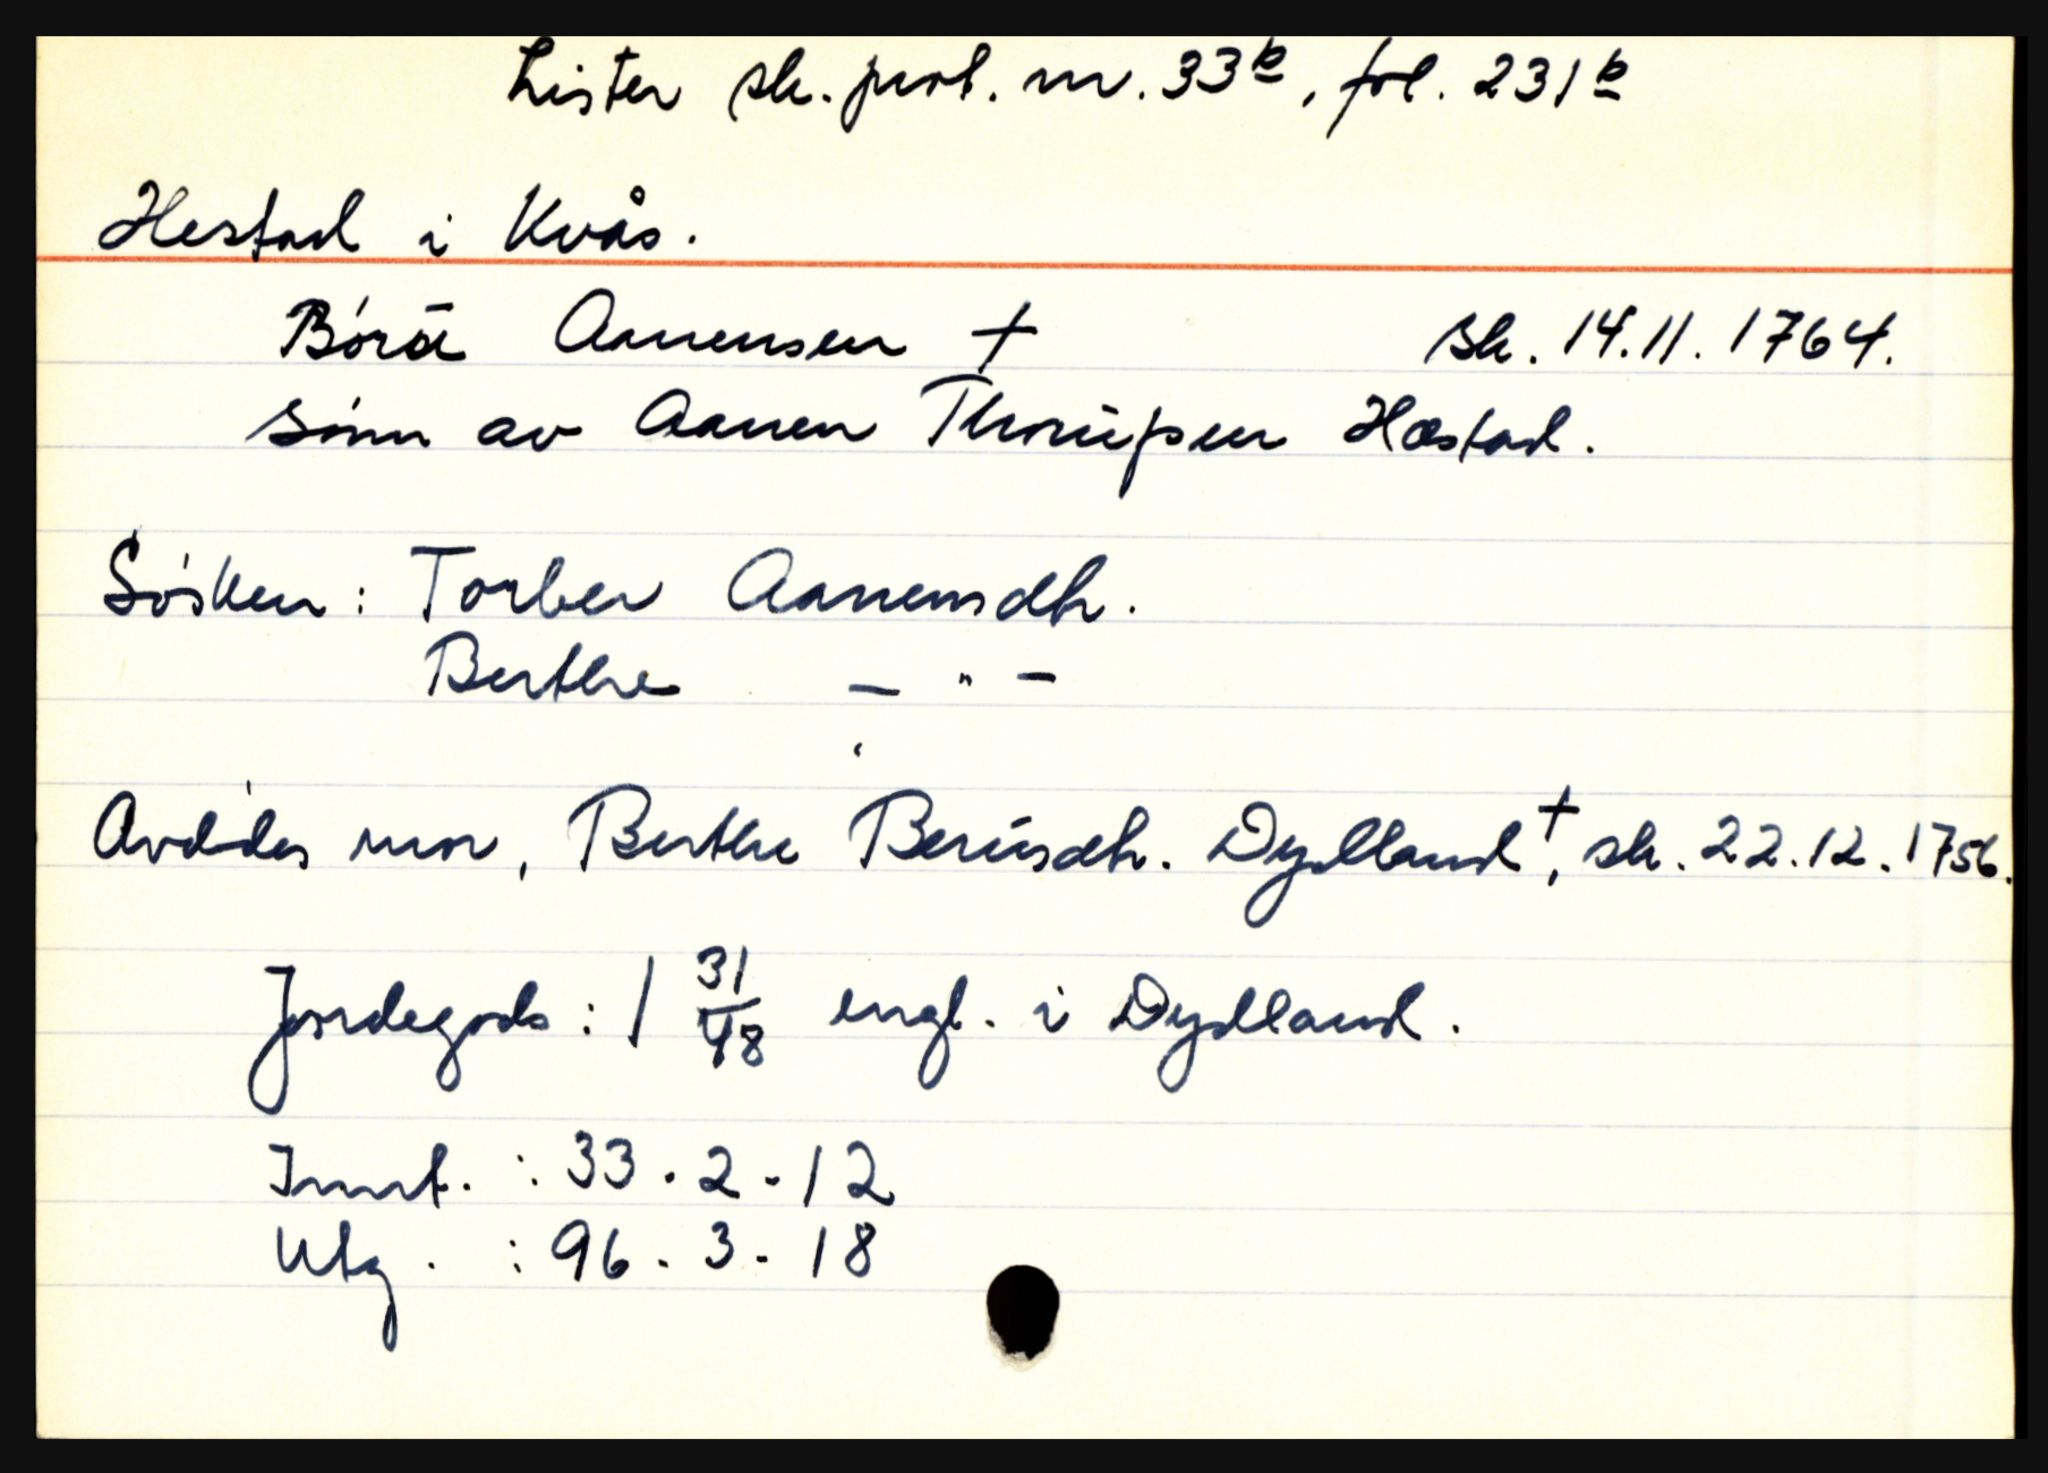 Lister sk. prot. nr. 33b, fol. 231b
Hestad i Kvås.
Börä Aanensen † sk. 14.11.1764.
sönn av Aanen Thorüpsen Hæstad.
Sösken: Torber Aanensdtr.
Berthe — " —
Avdödes mor, Berthe Berüsdtr. Dydland †, sk. 22.12.1756.
Jordegods: 1 31/48 engl. i Dydland.
Innt. : 33 - 2 - 12
Utg. : 96 - 3 - 18